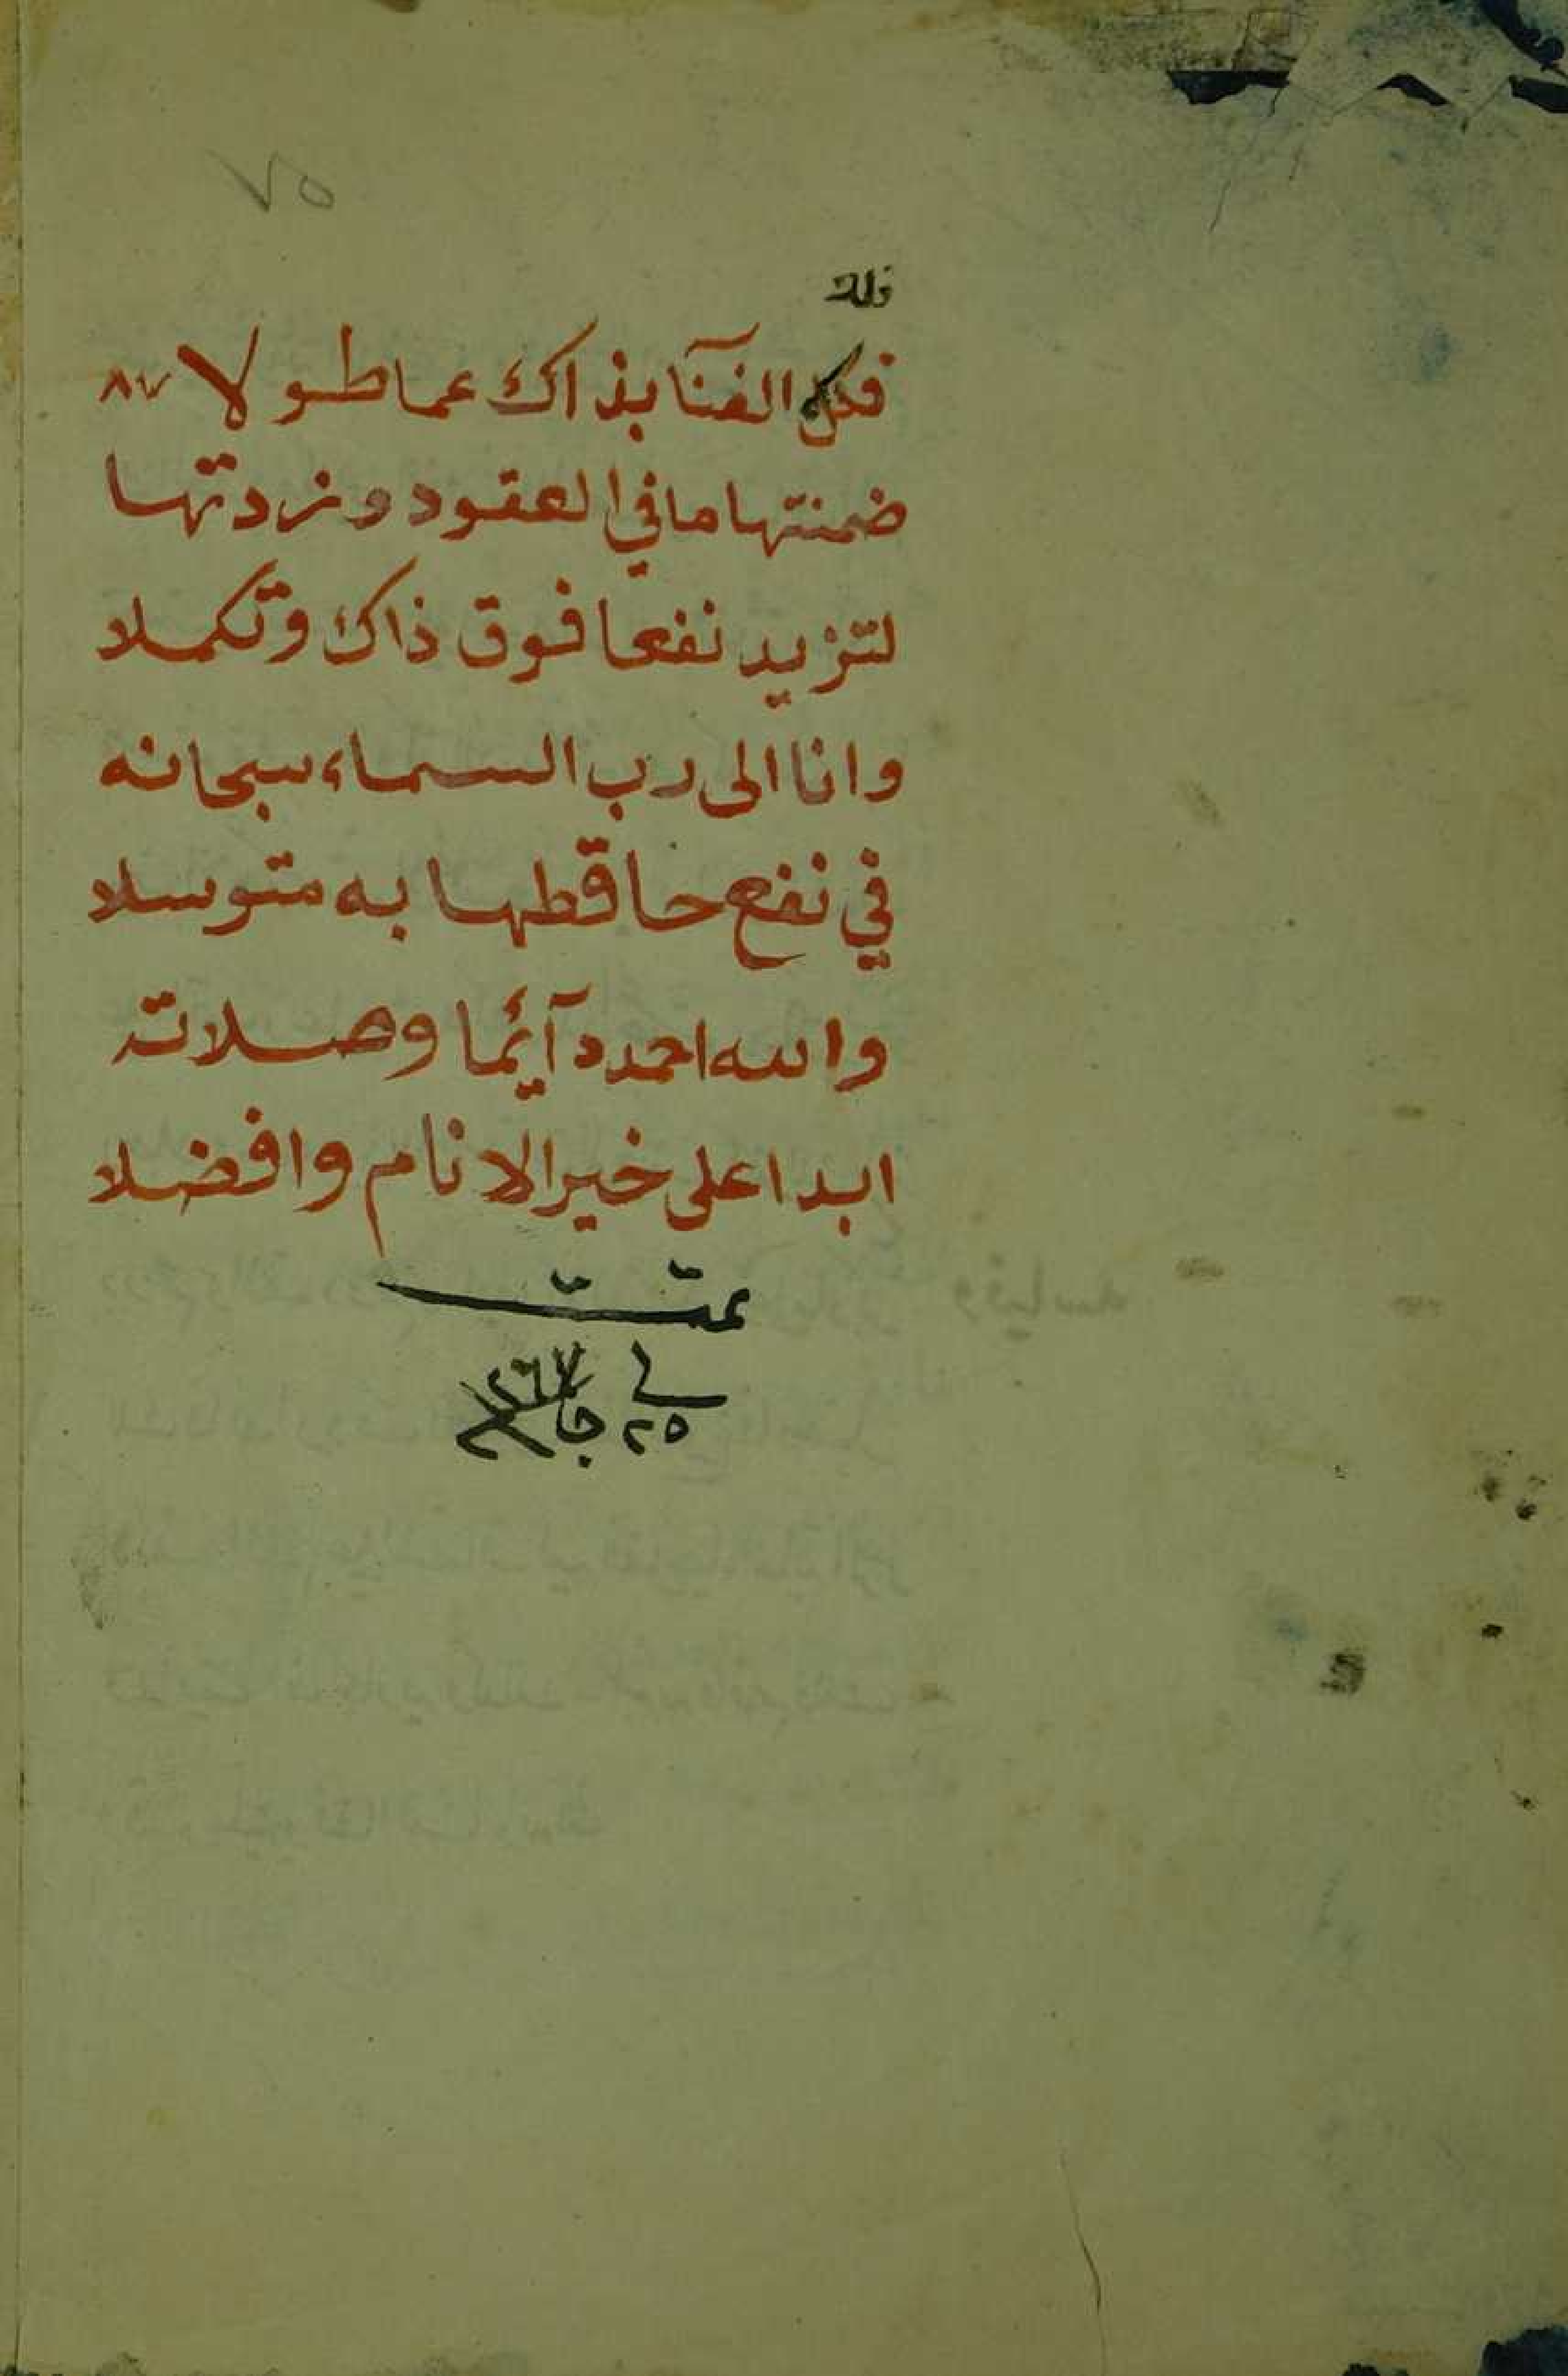 ٧٥
فله
فكل الغنآ بذاك عما طولا ٨٧
ضمنتها ما في العقود وزدتها
لتزيد نفعا فوق ذاك وتكملا
وانا الى رب السماء سبحانه
في نفع حاقطها به متوسلا
والله احمد دآئما وصلاته
ابدا على خير الانام وافضلا
تمت
في
٢٥ جا ١٢٦٧